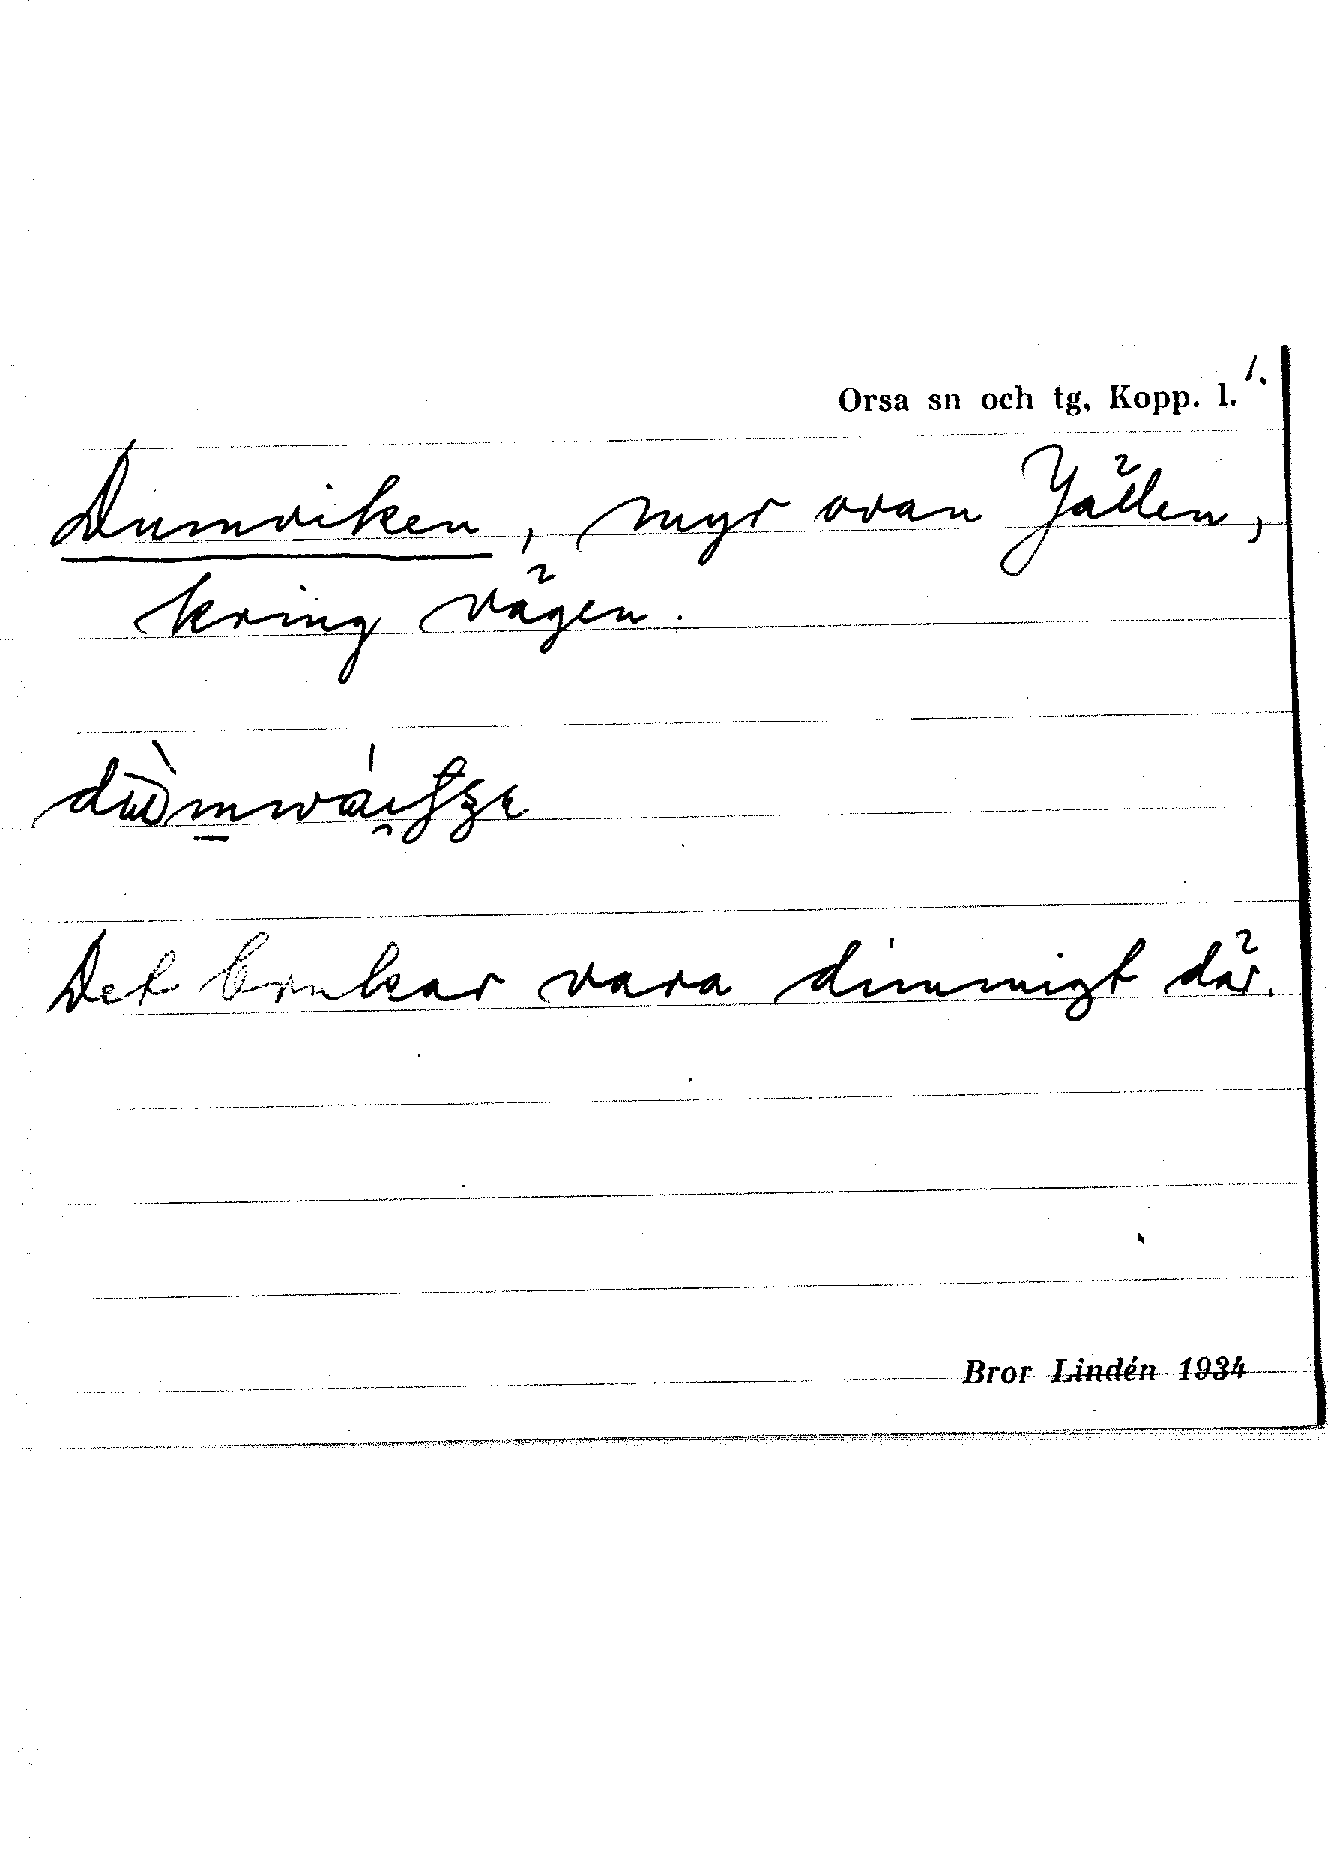 Orsa sn och tg, Kopp. l. 1.
Dumviken, myr ovan Jällen,
kring vägen.
Det brukar vara dimmigt där.
Bror Lindén 1934